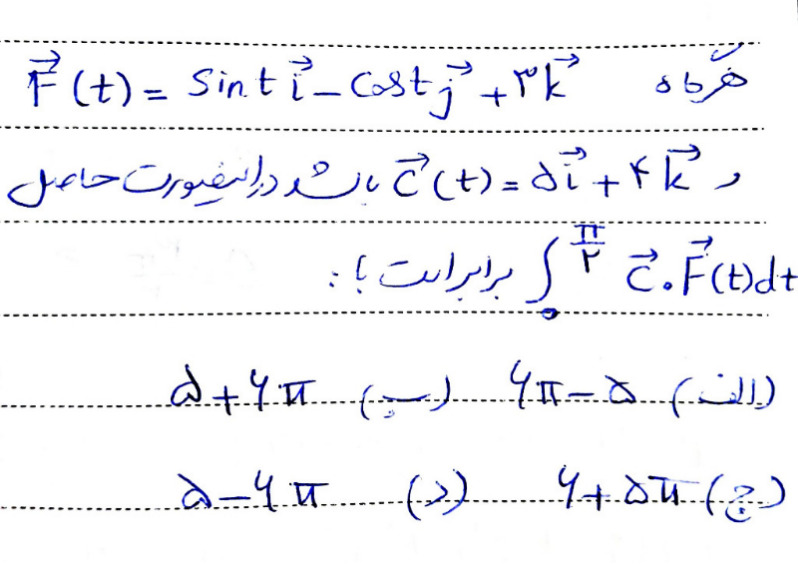 هرگاه F⃗(t) = Sint i⃗ - Cost j⃗ + ۳k⃗
و C⃗(t) = ۵i⃗ + ۴k⃗ باشد در اینصورت حاصل
∫₀^(π/۲) C⃗.F⃗(t)dt برابر است با :
الف) ۶π-۵ ب) ۵+۶π
ج) ۶+۵π د) ۵-۶π